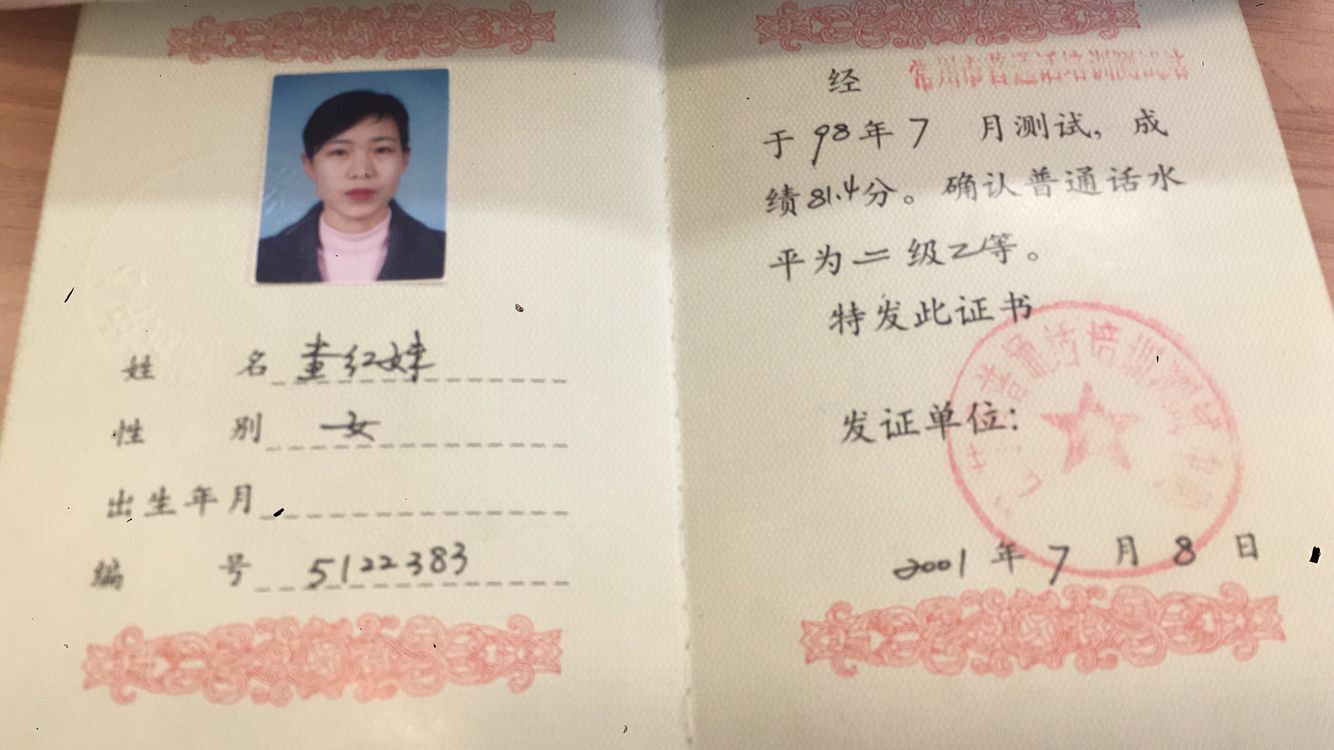 姓 名 董红妹
性 别 女
出生年月
编 号 5122383
经 常州市普通话培训测试站
于 98 年 7 月测试，成
绩 81.4 分。确认普通话水
平为 二 级 乙 等。
特发此证书
发证单位：
普通话培训测试
2001 年 7 月 8 日